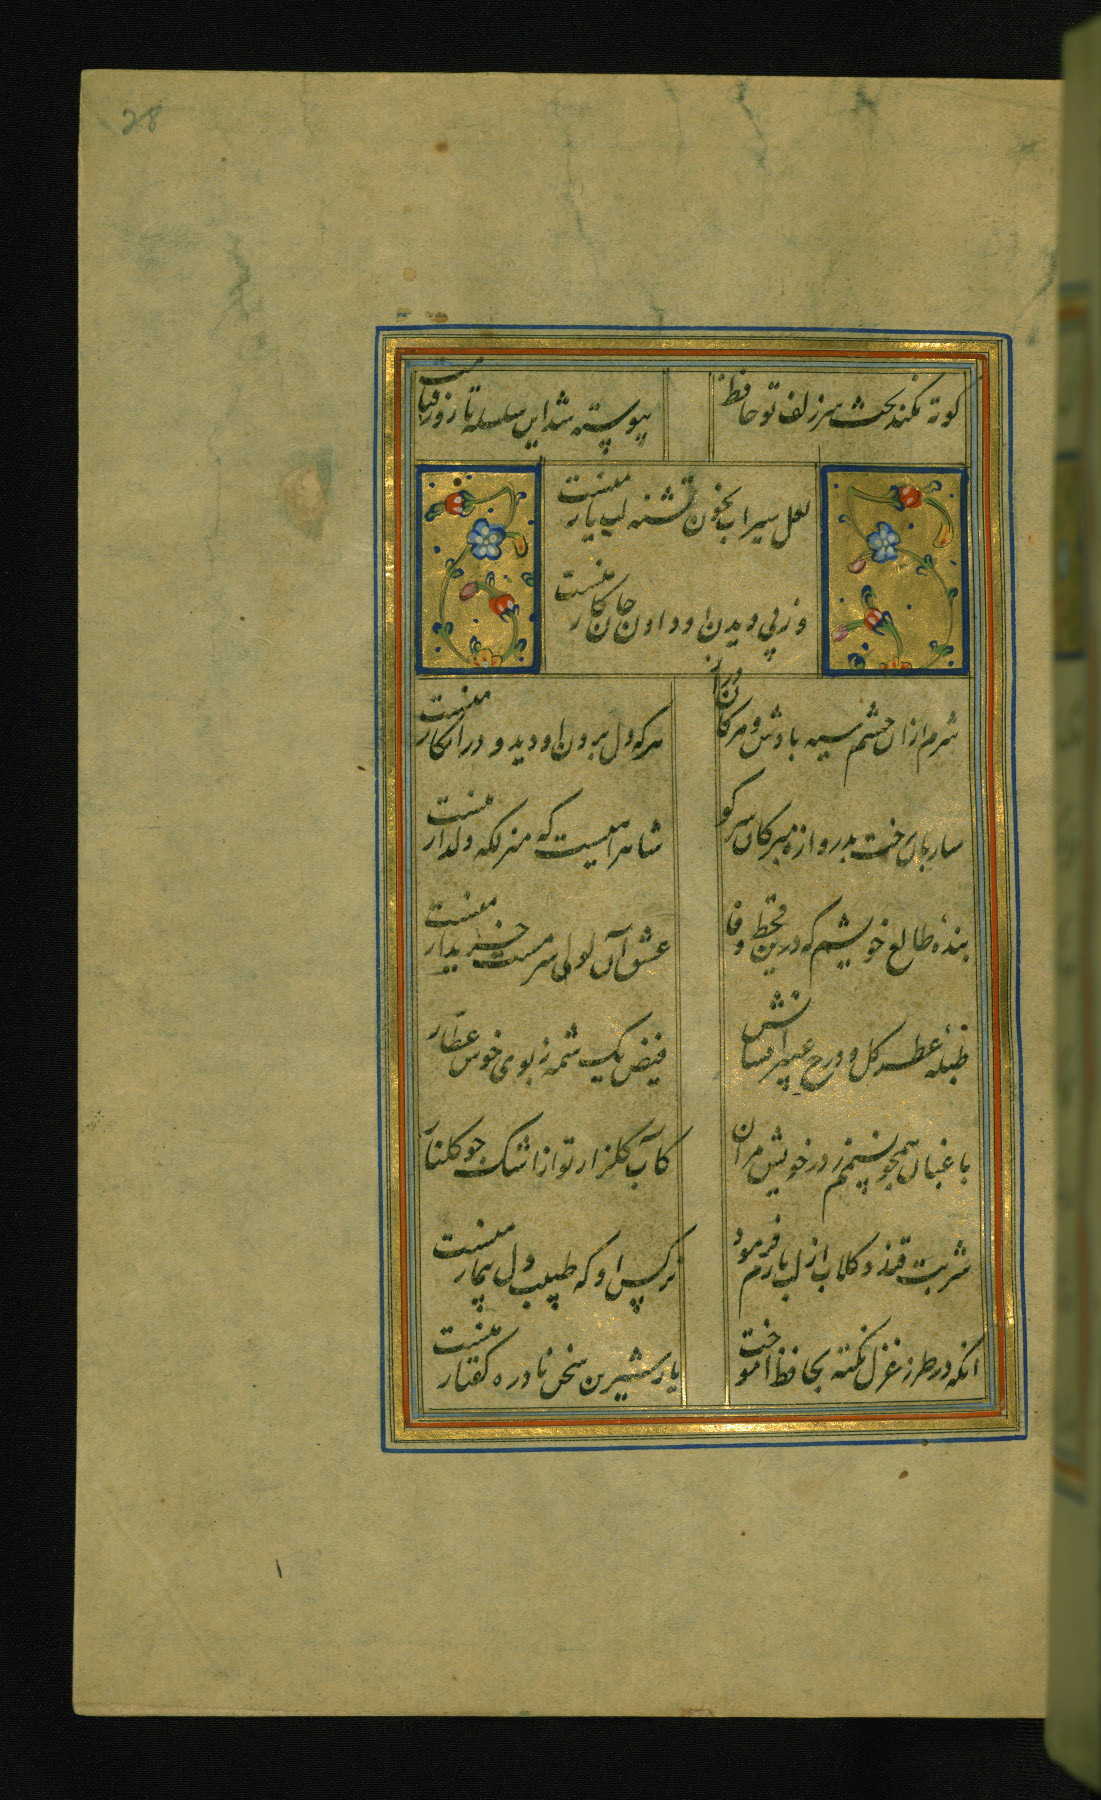 28
کوته نکند بحث سر زلف تو حافظ
پیوسته شد این سلسله تا روز قیامت
لعل سیراب بخون تشنه لب یار منست
وز پی دیدن او دادن جان کار منست
شرم از ان چشم سیه بادش و مژکان دراز
هر که دل بردن او دید و در انکار منست
ساربان رخت بدروازه مبر کان سر کو
شاهراهیست که منزلکه دلدار منست
بندهٔ طالع خویشم که درین قحط وفا
عشق آن لولی سرمست خریدار منست
طبلهٔ عطر کل و درج عبیر افشانش
فیض یک شمه ز بوی خوش عطار
باغبان همچو نسیمم ز در خویش مران
کآب کلزار تو از اشک جو کلنار
شربت قند و کلاب از لب یارم فرمود
نرکس او که طبیب دل بیمار منست
انکه در طرز غزل نکته بحافظ اموخت
یار شیرین سخن نادره کفتار منست
۱